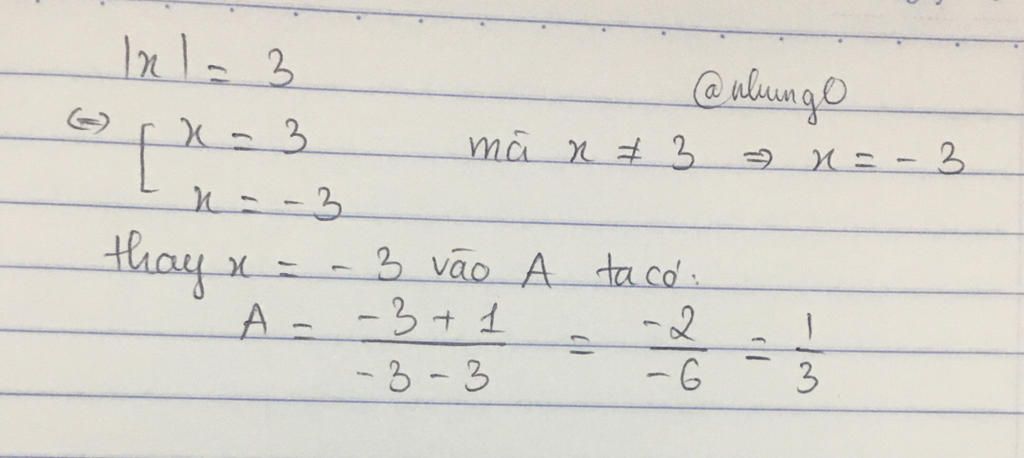 |x| = 3
@nhung0
⇔ [ x = 3 mà x ≠ 3 ⇒ x = -3
x = -3
thay x = -3 vào A ta có:
A = (-3+1)/(-3-3) = (-2)/(-6) = 1/3